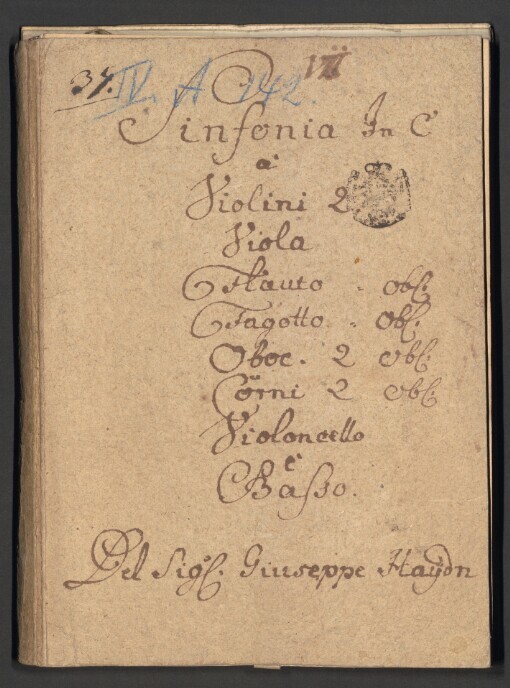 37. IV. A 142. VII
Sinfonia In C
a
Violini 2
Viola
Flauto . obl:
Fagotto . obl:
Oboe. 2 obl:
Corni 2 obl:
Violoncello
è
Baſso.
Del Sigl. Giuseppe Haÿdn